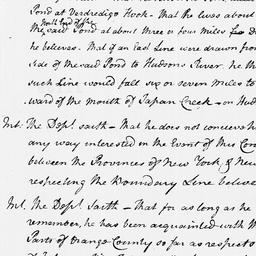 Pond at Verdredigo Hook – That he lives about
North End of the
the said Pond at about three or four Miles
he believes. That if an East Line were drawn from
Side of the said Pond to Hudsons River. he th
such Line would fall six or seven Miles to
ward of the Mouth of Tapan Creek – on Hud
Int: The Dept. saith – That he does not concieve h
any way interested in the Event of this Con
between the Provinces of New York & New
respecting the Boundary Line believe
Int. The Dept. Saith – That for as long as he
remember, he has been acquainted with M
Parts of Orange County so far as respects